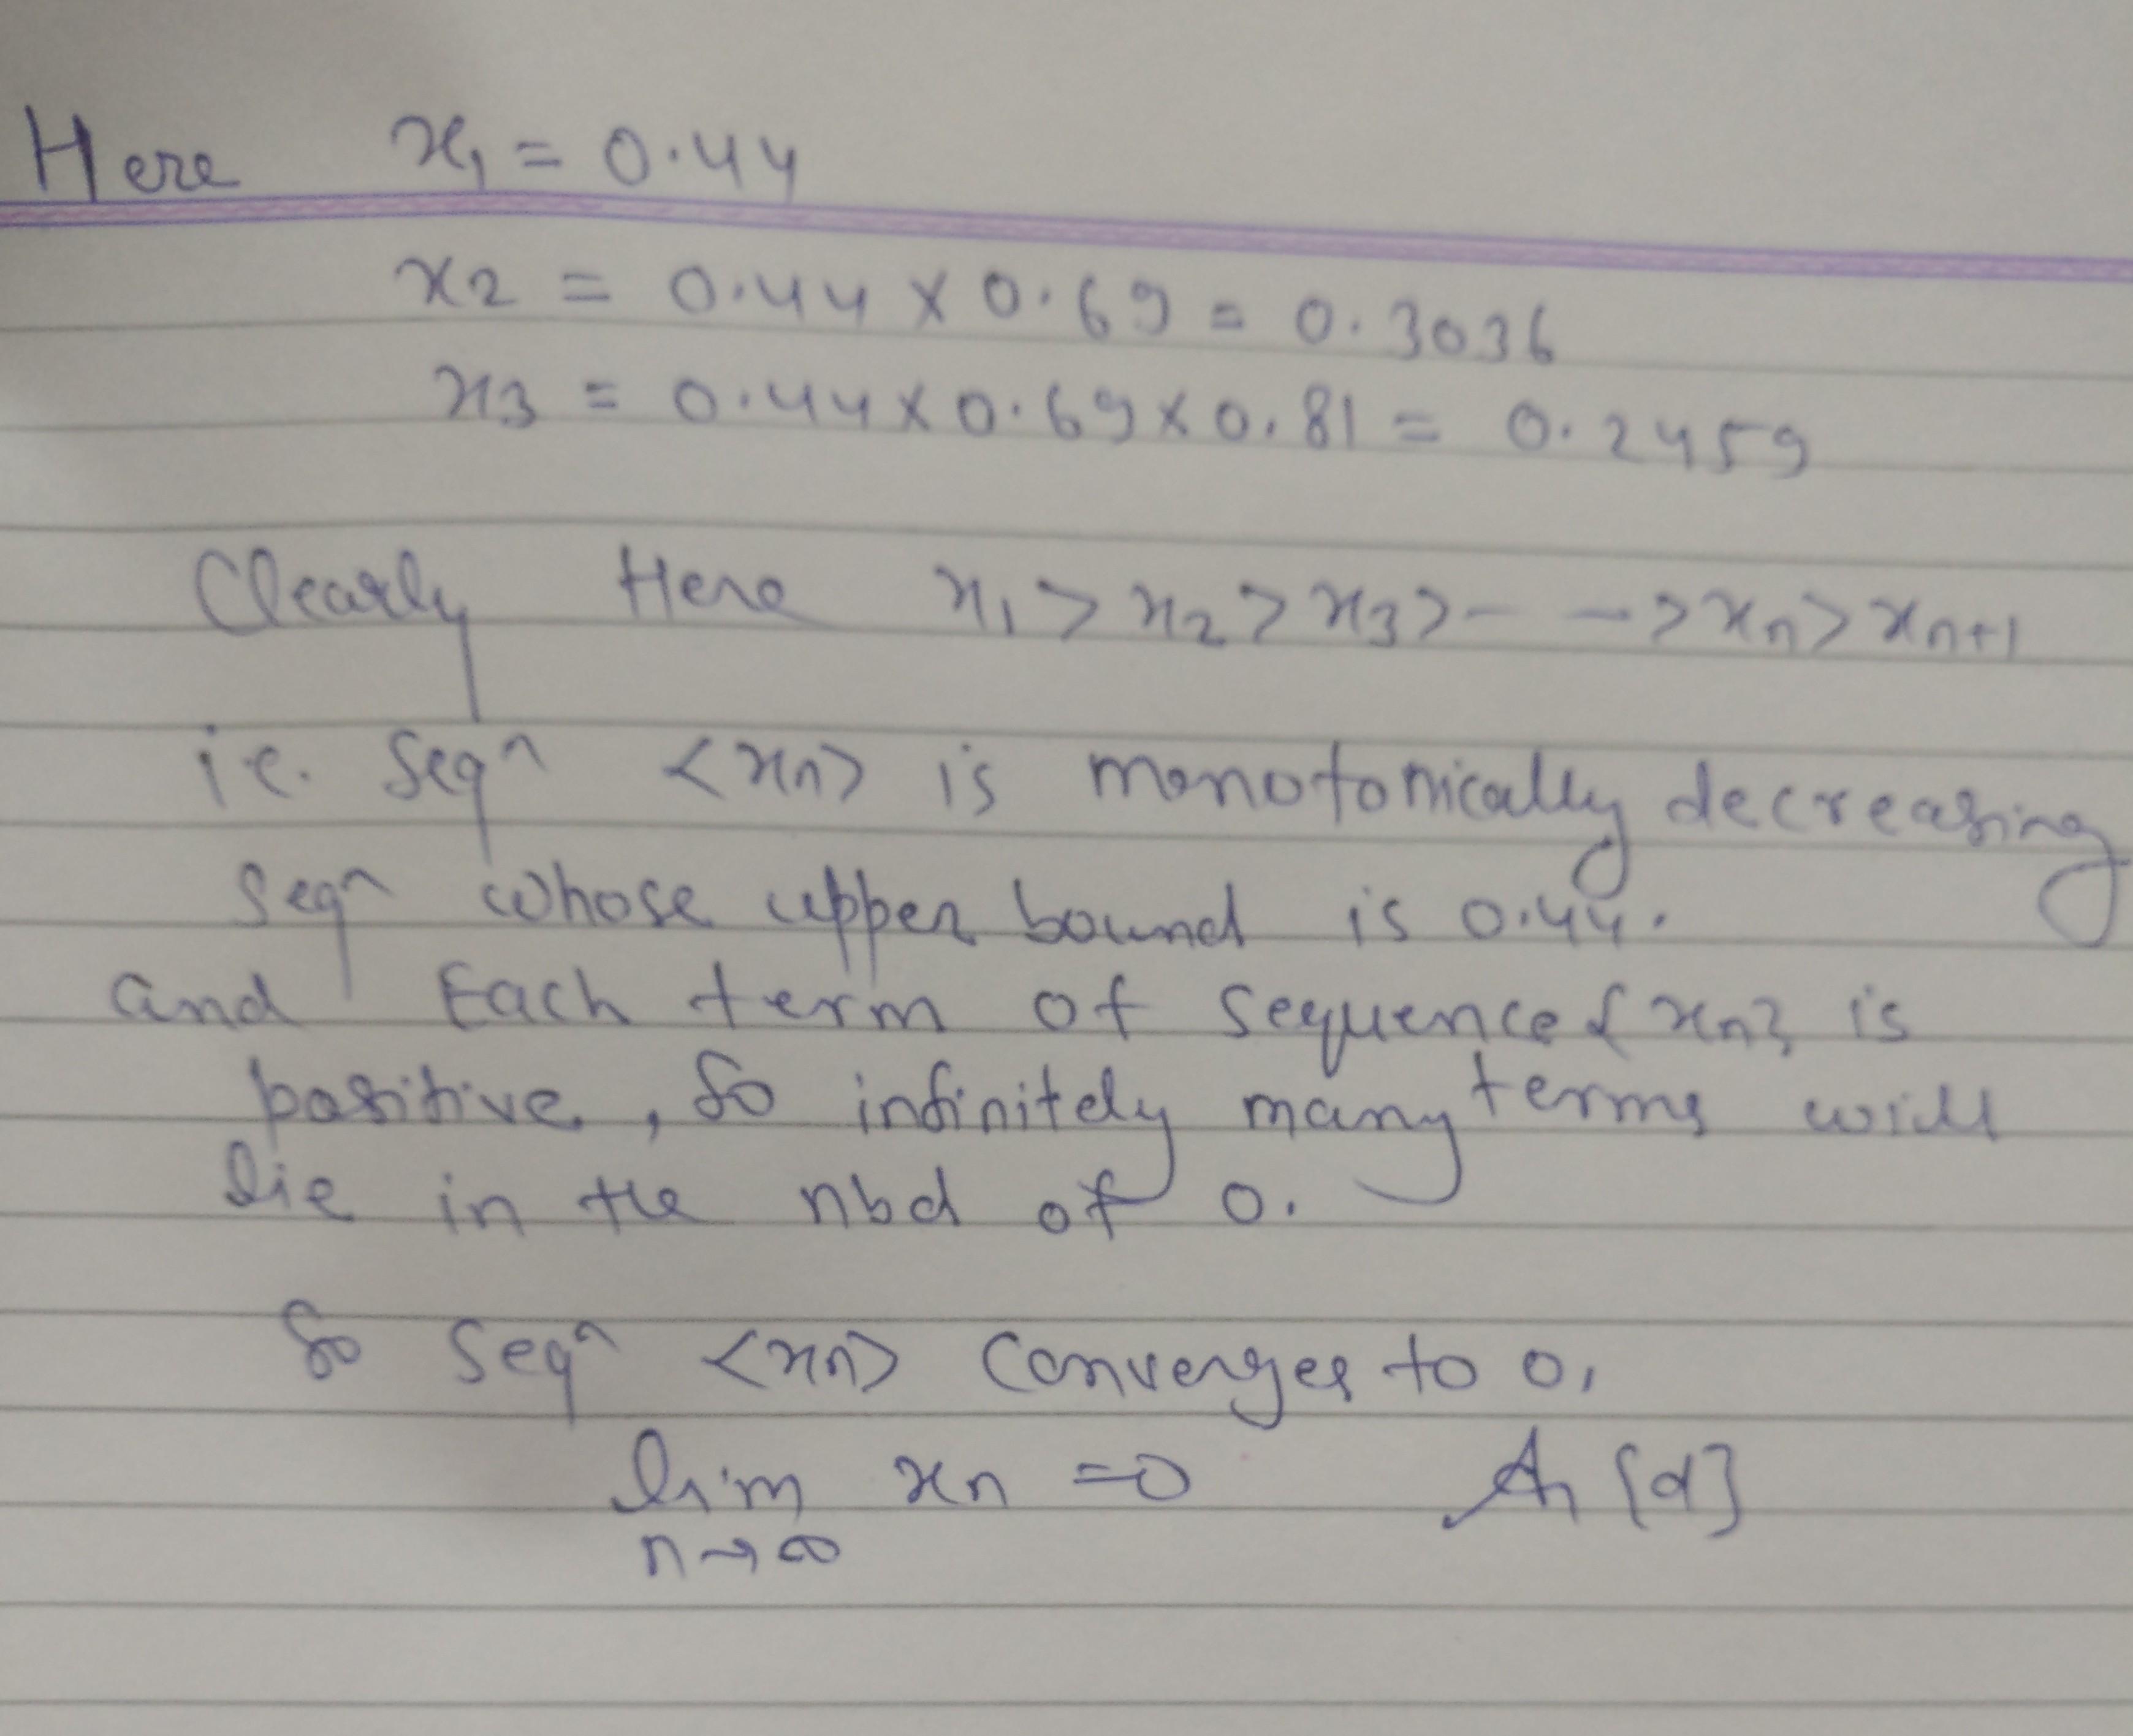 Here x₁ = 0.44
x2 = 0.44 × 0.69 = 0.3036
x3 = 0.44 × 0.69 × 0.81 = 0.2459
Clearly Here x₁ > x₂ > x₃ > - - > xₙ > xₙ₊₁
ie. Seqⁿ <xn> is monotonically decreasing
Seqⁿ whose upper bound is 0.44.
and Each term of sequence {xn} is
positive, So infinitely many terms will
lie in the nbd of 0.
So Seqⁿ <xn> converges to 0,
lim xn = 0 An [d]
n→∞